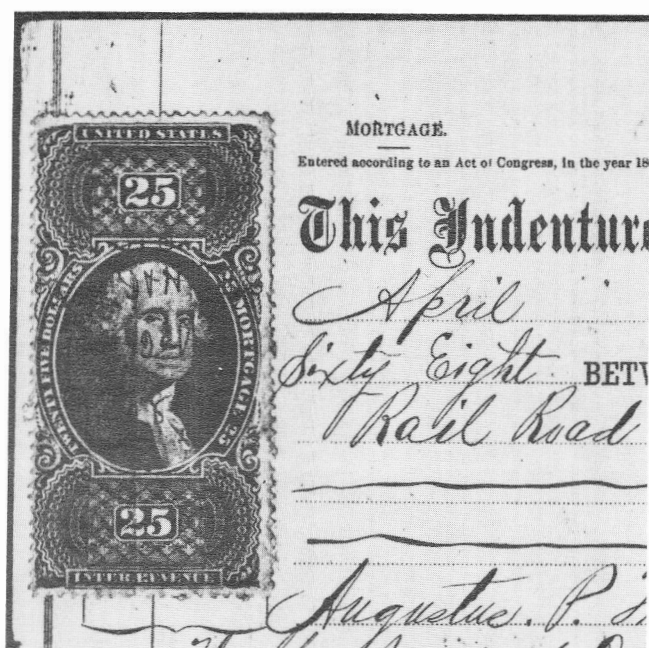 UNITED STATES
25
TWENTY FIVE DOLLARS
25 MORTGAGE. 25
25
INTER. REVENUE
MORTGAGE.
Entered according to an Act of Congress, in the year 18
This Indenture
April
Sixty Eight BETW
Rail Road
Augustus. P.